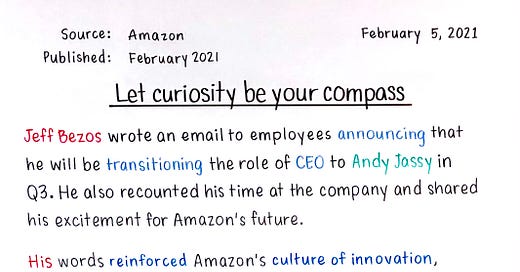 Source: Amazon February 5, 2021
Published: February 2021
Let curiosity be your compass
Jeff Bezos wrote an email to employees announcing that
he will be transitioning the role of CEO to Andy Jassy in
Q3. He also recounted his time at the company and shared
his excitement for Amazon's future.
His words reinforced Amazon's culture of innovation,